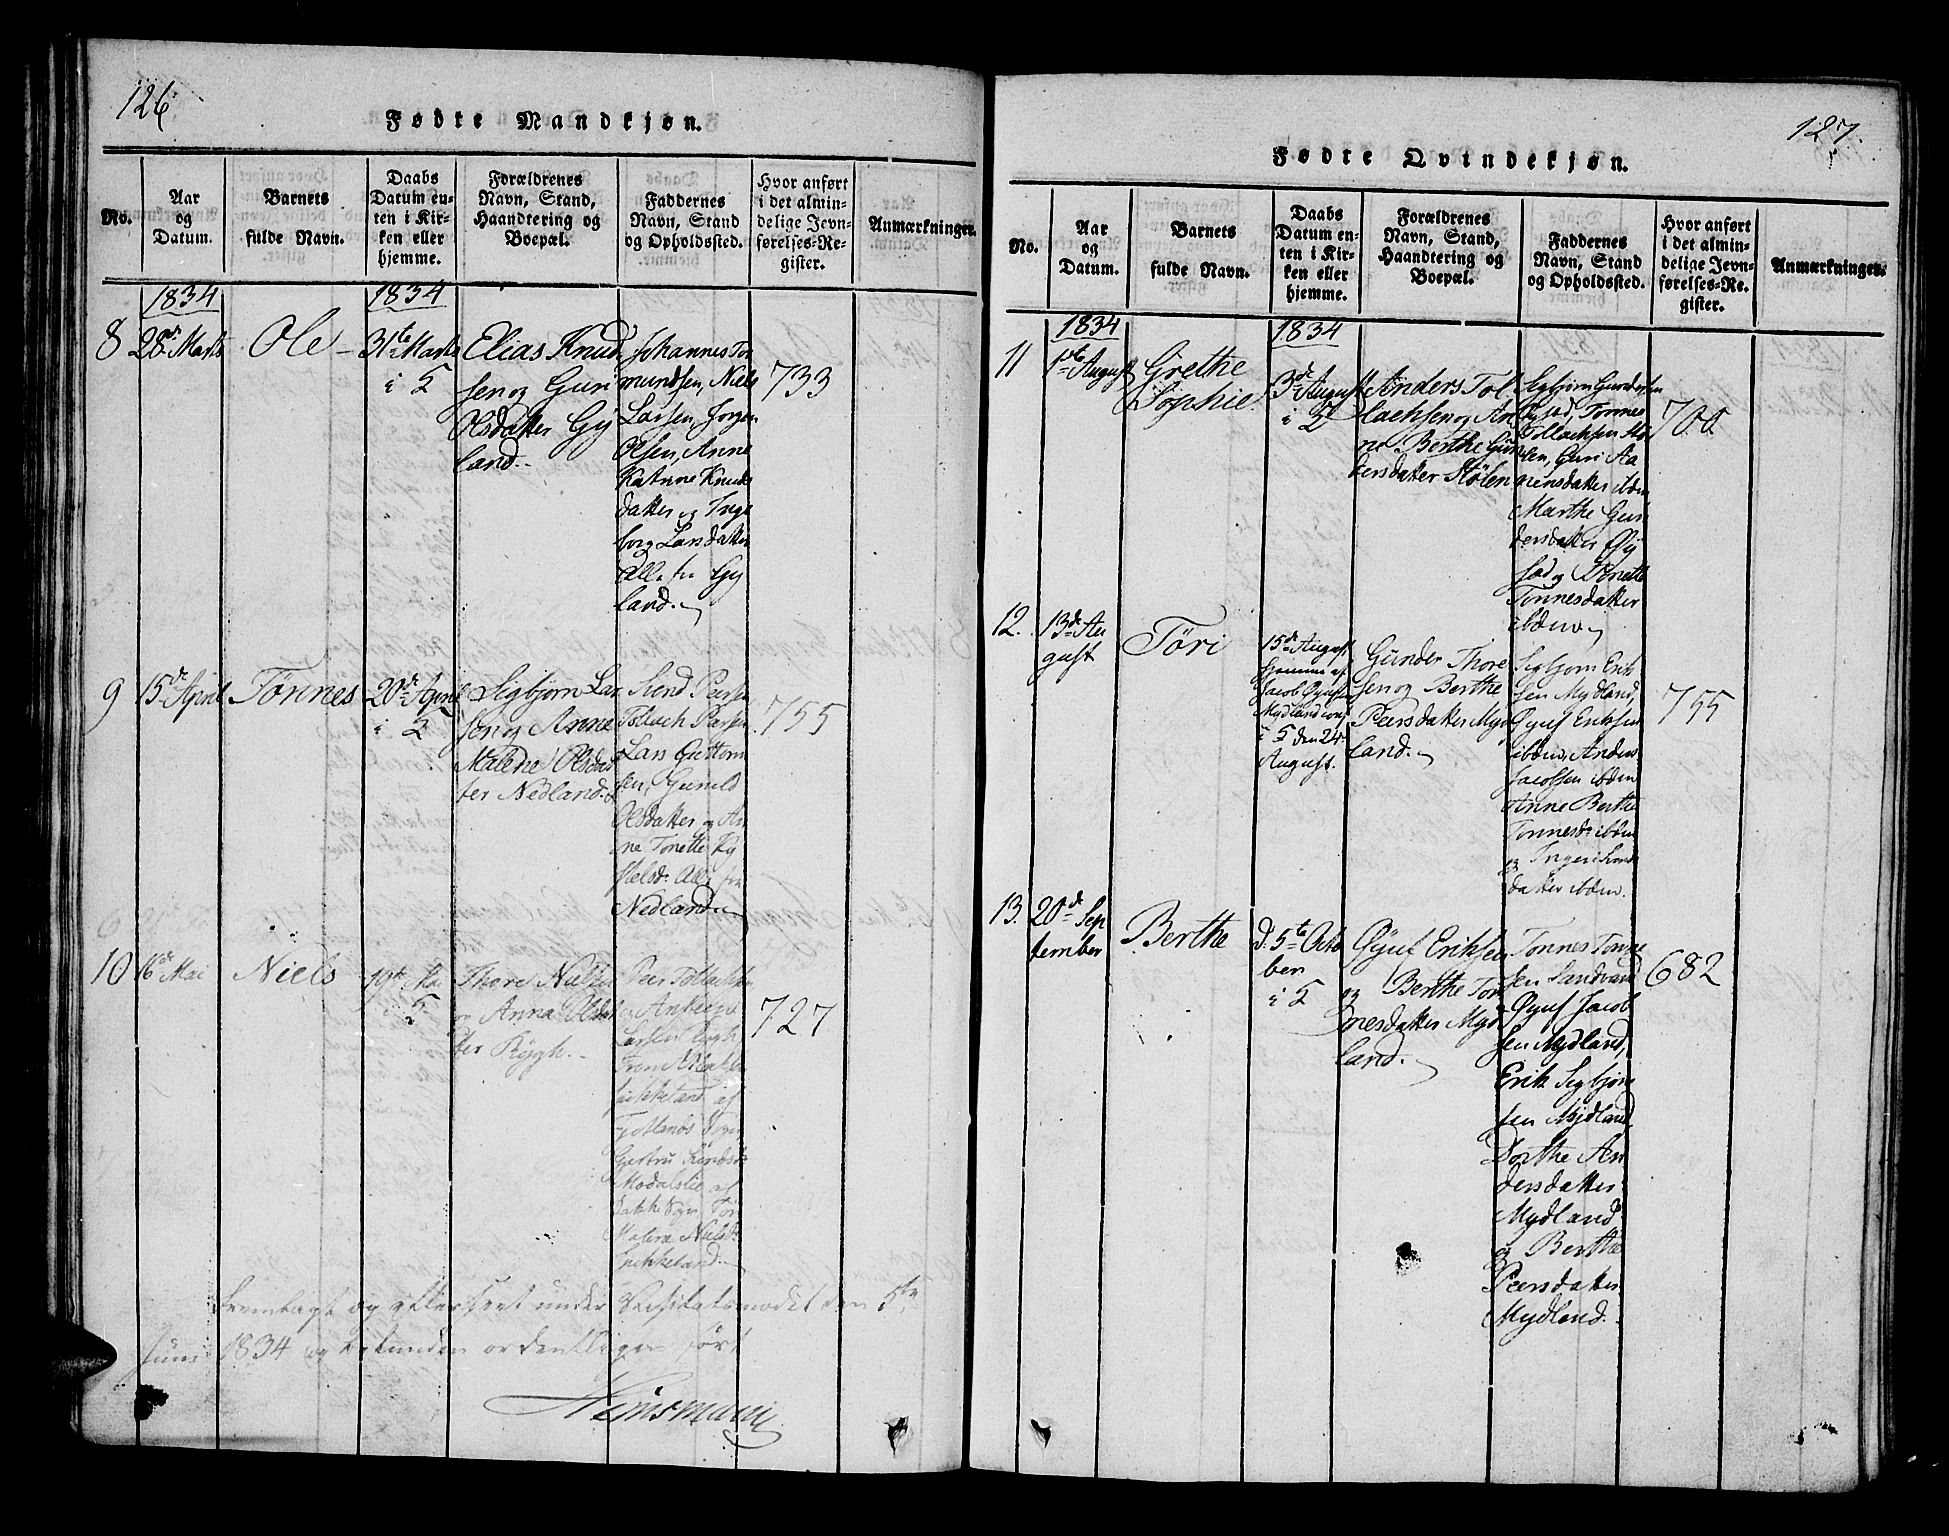 126
Fødte Mandkjøn.
No.
Aar
og
Datum.
Barnets
fulde Navn.
Daabs
Datum en-
ten i Kir-
ken eller
hjemme.
Forældrenes
Navn, Stand,
Haandtering og
Boepæl.
Faddernes
Navn, Stand
og Opholdssted.
Hvor anført
i det almin-
delige Jevn-
førelses-Re-
gister.
Anmærkninger.
1834
1834
8
28de Marts
Ole
31te Marts
i
Elias Knud
sen og Guri
Olsdatter Gy
land.
Johannes Tor
mundsen, Niels
Larsen, Jørgen
Olsen, Anne
Katrine Knuds
datter og Inge
borg Larsdatter
Alle fra Gy
land.
733
9
15de April
Tønnes
20de April
i
Sigbjørn Lar
sen og Anne
Malene Olsdat
ter Nedland.
Svend Peersen
Tollach Peersen
Lars Guttorm
sen, Gunild
Olsdatter og An
ne Tonette
Alle fra
Nedland
755
10
16de Mai
Niels
19de Mai
Thore Nielsen
og Anna Olsdat
ter Rygh.
Peer Tollachsen
Larsen Rygh
af
Fjotlands Sogn
af
Bakke Sogn
Malene Nielsd.
727
Fremlagt og efterseet under Visitatsmødet den 5te
Juni 1834 og befunden ordentligen ført
127.
Fødte Qvindekjøn.
No.
Aar
og
Datum.
Barnets
fulde Navn.
Daabs
Datum en-
ten i Kir-
ken eller
hjemme.
Forældrenes
Navn, Stand,
Haandtering og
Boepæl.
Faddernes
Navn, Stand
og Opholdssted.
Hvor anført
i det almin-
delige Jevn-
førelses-Re-
gister.
Anmærkninger.
1834
1834
11
1ste August
Grethe
Sophie.
3de August
i
Anders Tol
lachsen og An
ne Berthe Gun
dersdatter Stølen
Sigbjørn Gundersen
Øysad, Tonnes
Tollachsen Stø
len, Guri Aa
nensdatter ibdm
Marthe Gun
dersdatter Øy
sad og Tonette
Tønnesdatter
ibdm
700
12.
13de Au
gust
Töri
15de August
hjemme af
Jacob Øyufsen
Mydland conf
i den 24
August.
Gunder Thore
sen og Berthe
Peersdatter Myd
land.
Sigbjørn Erik
sen Mydland,
Øyuf Eriksen
ibdm, Anders
Jacobsen ibdm
Anne Berthe
Tonnesd. ibdm
og Inger
datter ibdm.
755
13.
20de Sep
tember
Berthe
d. 5te Octo
ber
i
Øyuf Eriksen
og Berthe Ton
nesdatter Myd
land.
Tonnes Tonne
sen Sandvand
Øyuf Jacob
sen Mydland,
Erik Sigbjørn
sen Mydland,
Dorthe An
dersdatter
Mydland
og Berthe
Peersdatter
Mydland.
682